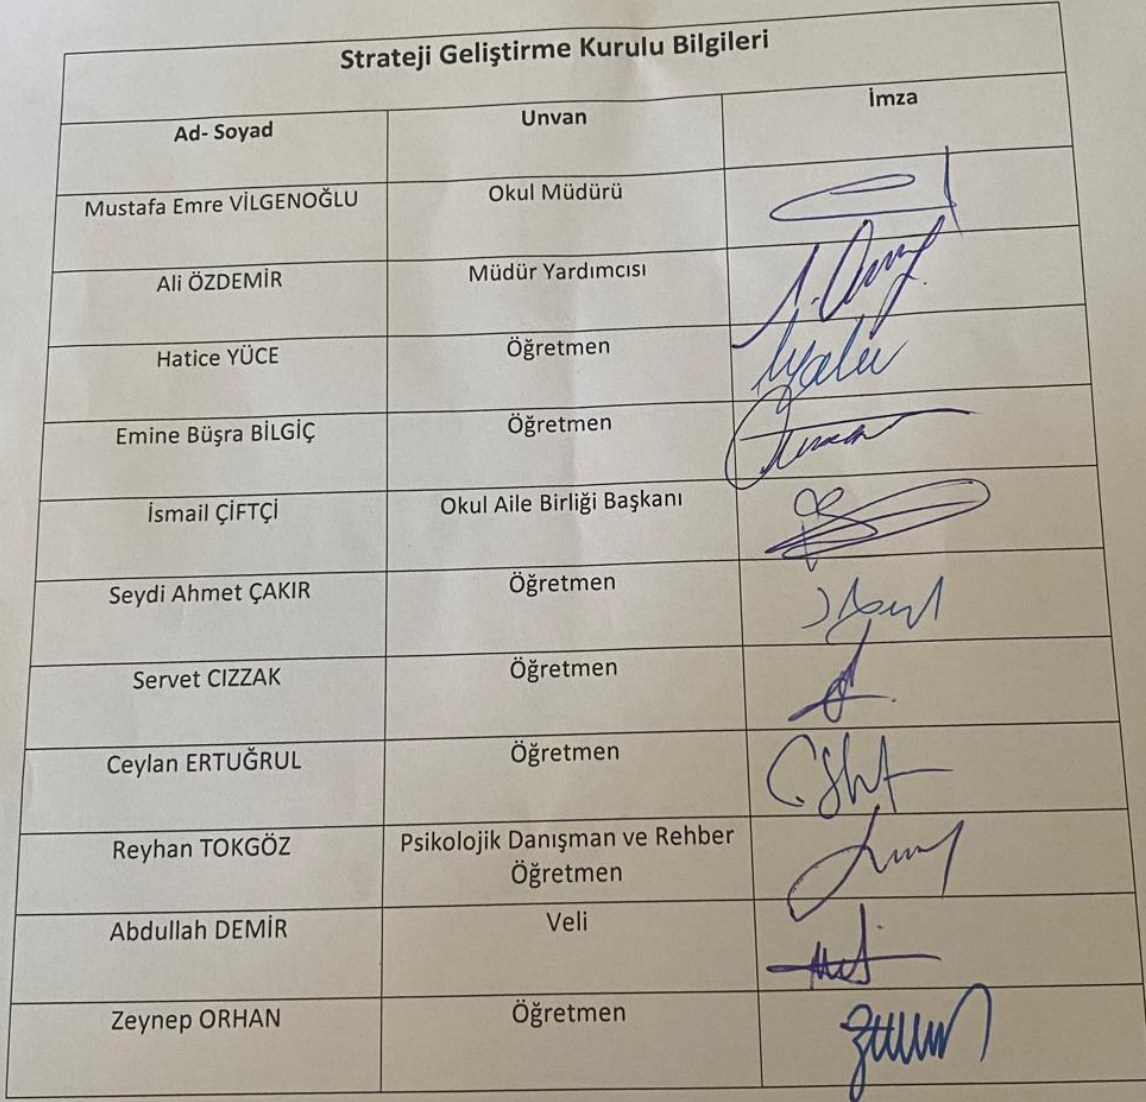 Strateji Geliştirme Kurulu Bilgileri
Ad- Soyad Unvan İmza
Mustafa Emre VİLGENOĞLU Okul Müdürü
Ali ÖZDEMİR Müdür Yardımcısı
Hatice YÜCE Öğretmen
Emine Büşra BİLGİÇ Öğretmen
İsmail ÇİFTÇİ Okul Aile Birliği Başkanı
Seydi Ahmet ÇAKIR Öğretmen
Servet CIZZAK Öğretmen
Ceylan ERTUĞRUL Öğretmen
Reyhan TOKGÖZ Psikolojik Danışman ve Rehber
Öğretmen
Abdullah DEMİR Veli
Zeynep ORHAN Öğretmen